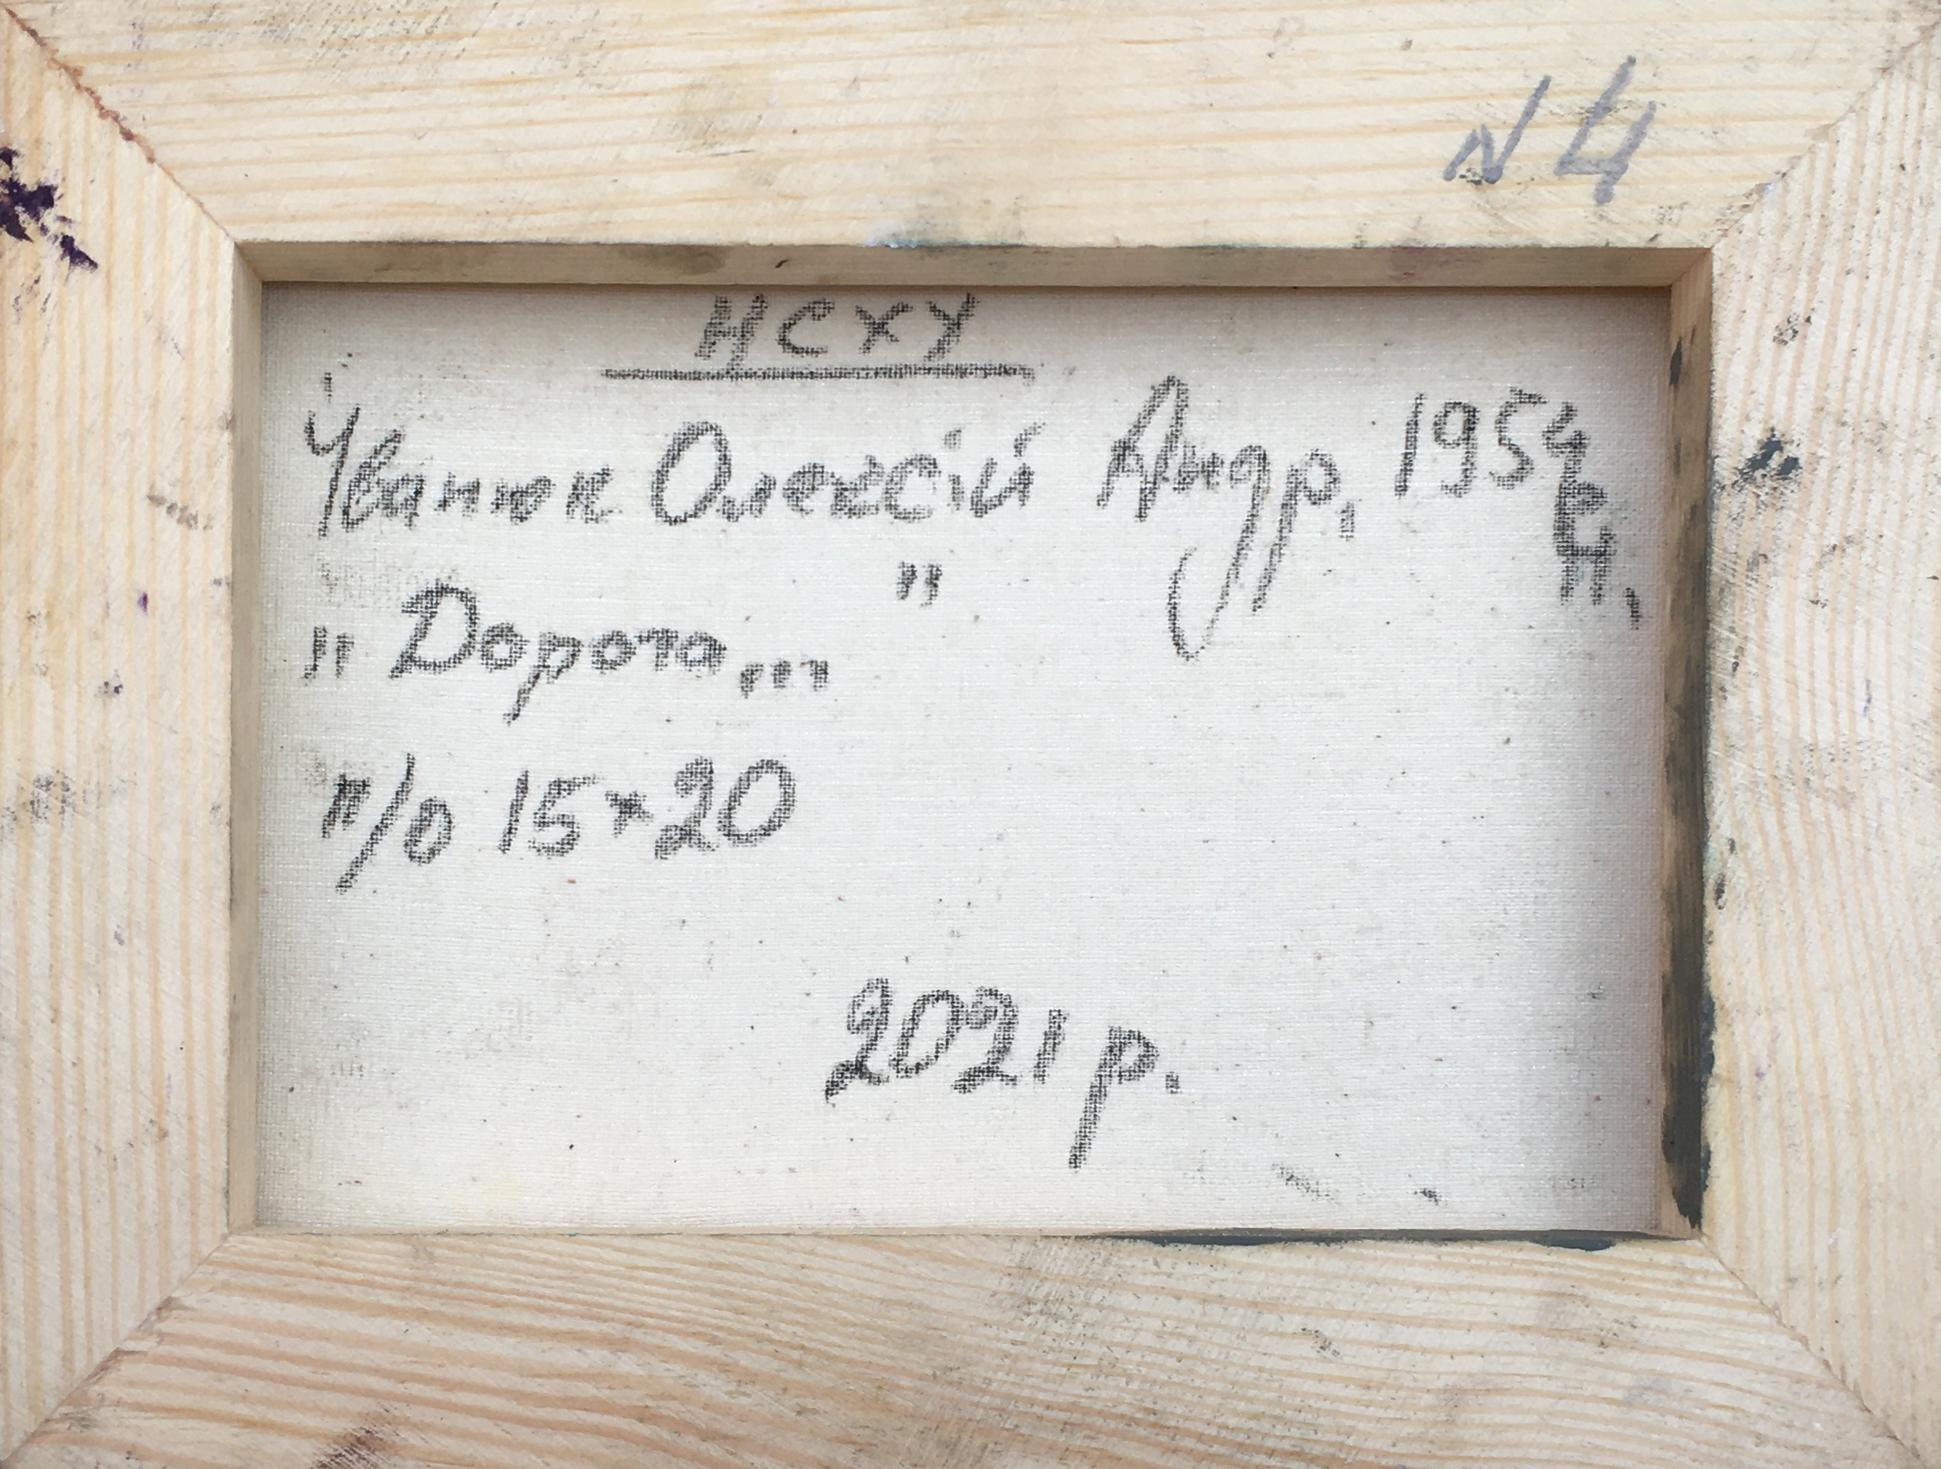 N 4
НСХУ
Іванюк Олексій Андр, 1954 р.н.
"Дорога..."
п/о 15×20
2021 р.